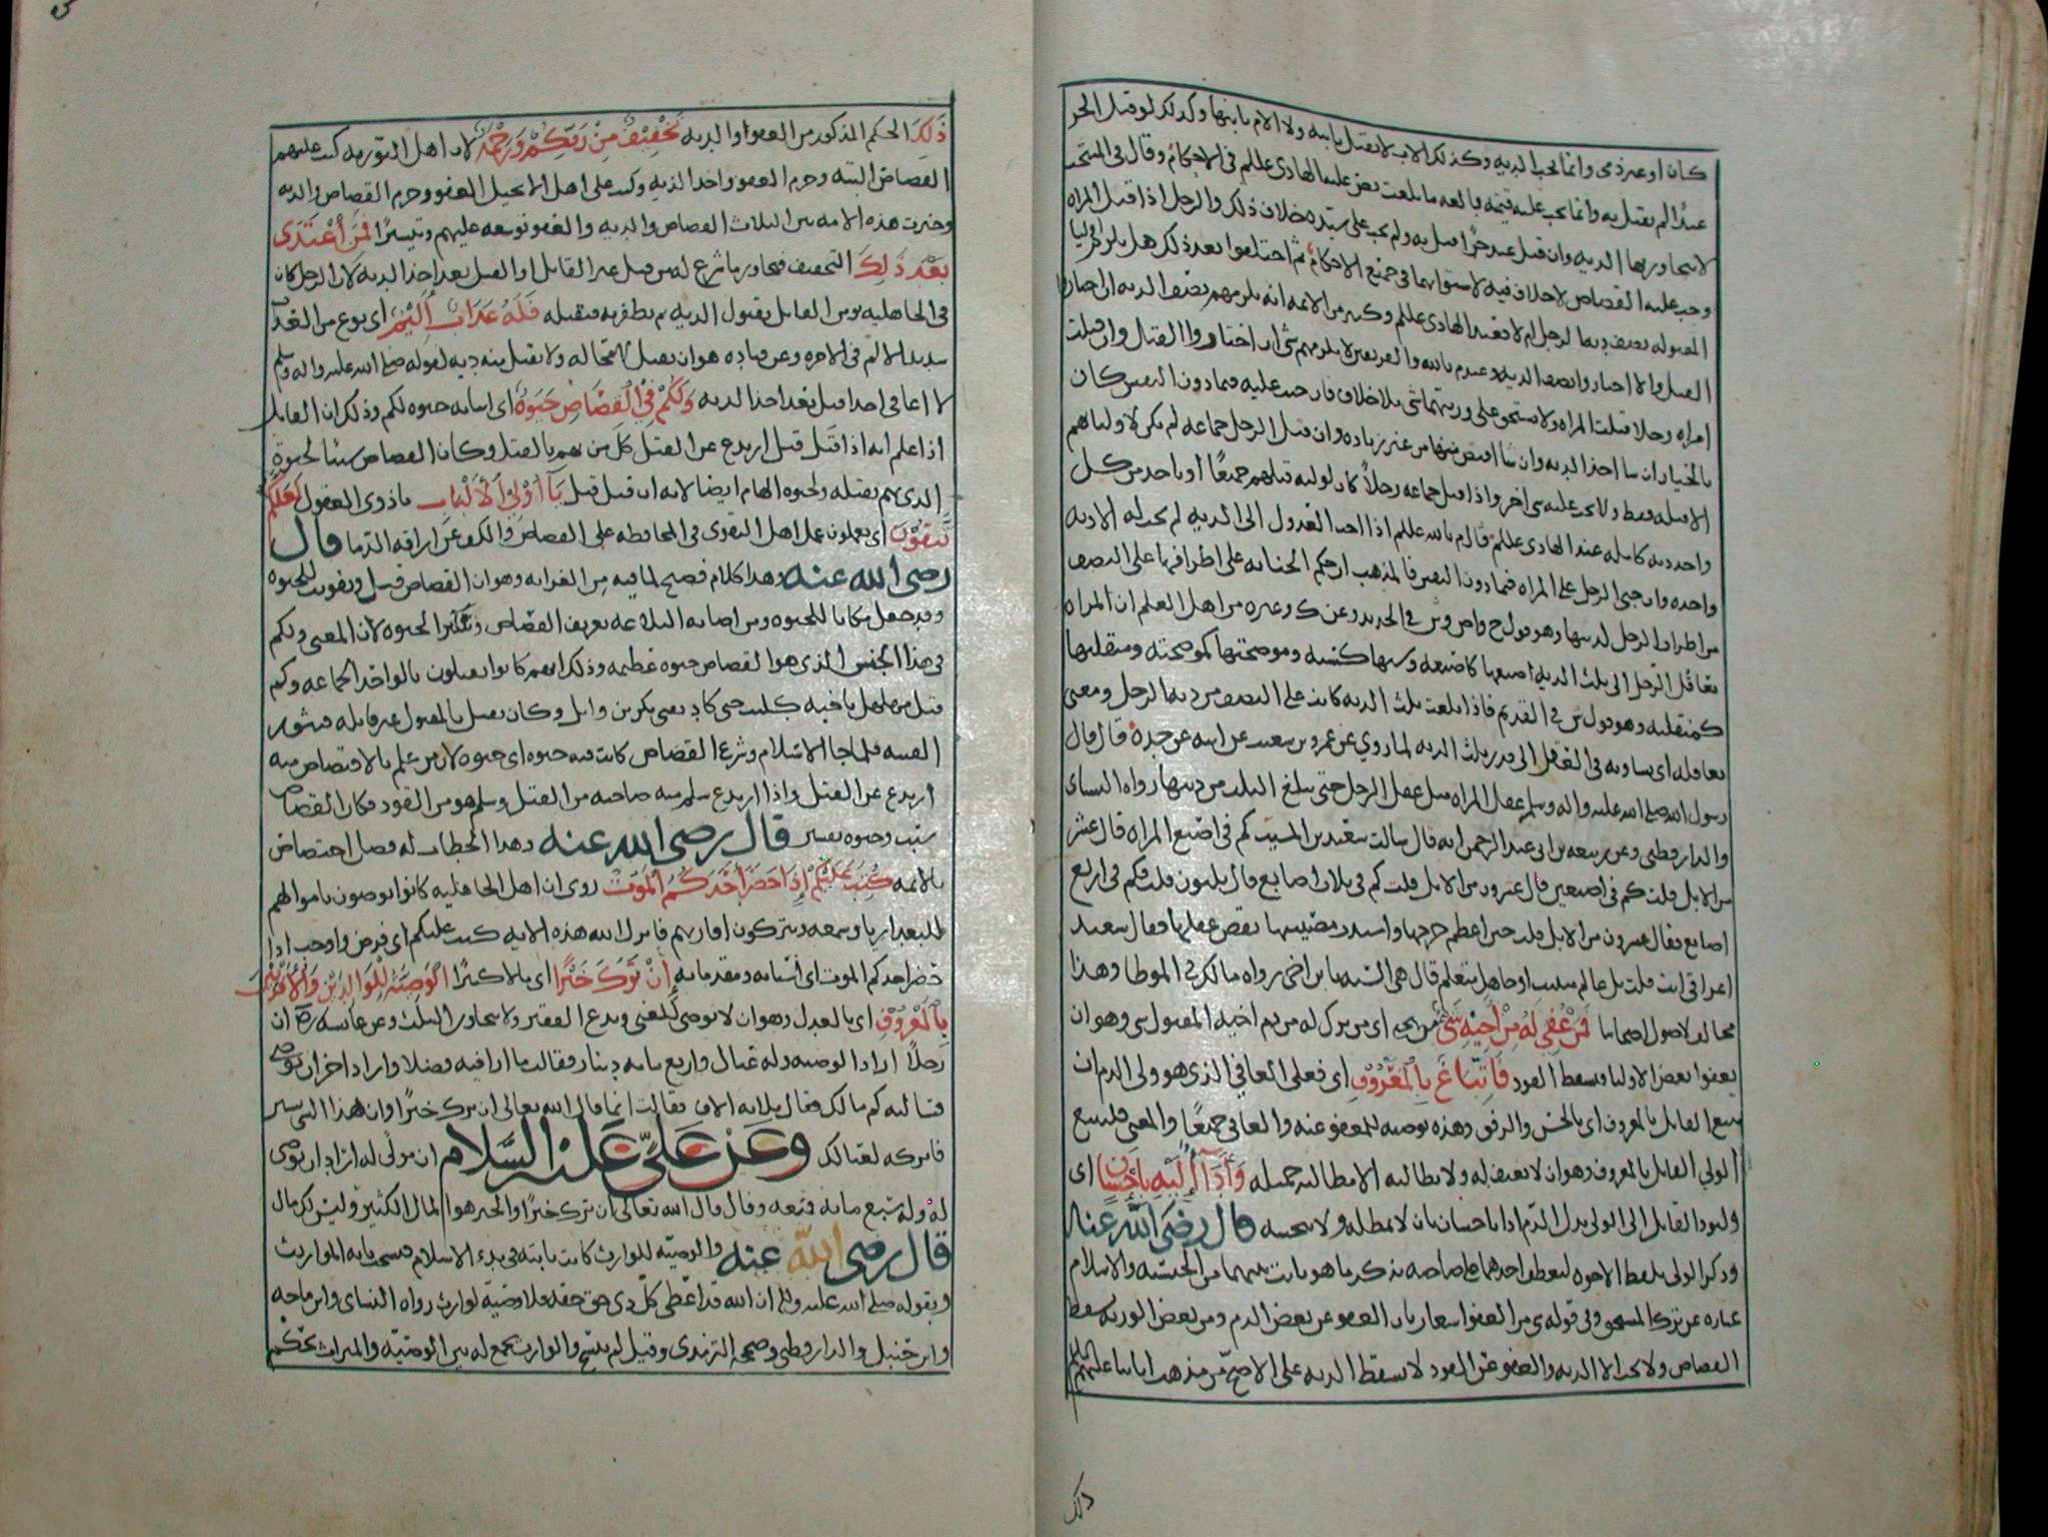 كان او غير ذمي وانما تجب الديه وكذلك الاب لا يقتل بابنه ولا الام بابنها وكذلك لو قتل الحر
عبدًا لم يقتل به وانما يجب عليه قيمته بالغه ما بلغت نص عليه الهادي عللم في الاحكام وقال في المنتخب
لا يتجاوز بها الديه وان قتل عبد حرًا قتل به ولم يجب على سيده خلاف ذلك والرجل اذا قتل المراه
وجب عليه القصاص لا خلاف فيه لاستوائهما في جميع الاحكام ثم اختلفوا بعد ذلك هل يلزم اوليا
المقتوله نصف ديه الرجل ام لا فعند الهادي عللم وكثير من الائمه انه يلزمهم نصف الديه ان اختاروا
القتل والا اختاروا نصف الديه وعند م بالله والفريقين لا يلزمهم شي ان اختاروا القتال وان قتلت
امراه رجلا قتلت المراه ولا يستحق على ورثتها شي بلا خلاف فان جنت عليه فيما دون النفس كان
بالخيار ان شا اخذ الديه وان شا اقتص منها من غير زياده وان قتل الرجل جماعه لم يكن لاوليائهم
الا قتله فقط ولا يجب عليه شي اخر واذا قتل جماعه رجلاً كان لوليه قتلهم جميعًا او ياخذ من كل
واحد ديه كامله عند الهادي عللم قال م بالله عللم اذا احب العدول الى الديه لم يجب له الا ديه
واحده وان جنى الرجل على المراه فيما دون النفس فالمذهب ان حكم الجنايه على اطرافها على النصف
من اطراف الرجل لديتها وهو قول ح وص وش في الجديد وعن ك وغيره من اهل العلم ان المراه
تعاقل الرجل الى ثلث الديه اصبعها كاصبعه وسنها كسنه وموضحتها كموضحته ومنقلتها
كمنقلته وهو قول ش في القديم فاذا بلغت ثلث الديه كانت على النصف من ديه الرجل ومعنى
تعاقله اي تساويه في العقل الى قدر ثلث الديه لما روي عن عمرو بن شعيب عن ابيه عن جده قال قال
رسول الله صلى الله عليه واله وسلم عقل المراه مثل عقل الرجل حتى تبلغ الثلث من ديتها رواه النسائ
والدارقطني وعن ربيعه بن ابي عبد الرحمن انه قال سالت سعيد بن المسيب كم في اصبع المراه قال عشر
من الابل قلت كم في اصبعين قال عشرون من الابل قلت كم في ثلاث اصابع قال ثلثون قلت فكم في اربع
اصابع فقال عشرون من الابل قلت حين اعظم جرحها واشتدت مصيبتها نقص عقلها فقال سعيد
اعراقي انت قلت بل عالم متثبت او جاهل متعلم قال هي السنه يا بن اخي رواه مالك في الموطا وهذا
مخالف لاصول اصحابنا فَمَنْ عُفِيَ لَهُ مِنْ أَخِيْهِ شَيْءٌ اي من ترك له من دم اخيه المقتول شي وهو ان
يعفوا بعض الاوليا فيسقط القود فَاتِّبَاعٌ بِالْمَعْرُوْفِ اي فعلى العافي الذي هو ولي الدم ان
يتبع القاتل بالمعروف اي بالحسن والرفق وهذه توصيه للمعفو عنه والعافي جميعًا والمعنى فليتبع
الولي القاتل بالمعروف وهو ان لا يعنف له ولا يطالبه الا مطالبه جميله وَأَدَآءٌ إِلَيْهِ بِإِحْسَانٍ اي
وليود القاتل الى الولي بدل الدم اداءً باحسان بان لا يمطله ولا يبخسه قال رضي الله عنه
وذكر الولي بلفظ الاخوه ليعطف احدهما على صاحبه بذكر ما هو ثابت بينهما من الجنسيه والاسلام
عباره عن ترك المستحق وفي قوله شي من العفو اشعار بان العفو عن بعض الدم ومن بعض الورثه يسقط
القصاص ولا يجب الا الديه والعفو عن القود لا يسقط الديه على الاصح من مذهب ابائنا عليهم السلم
ذلك
ذَلِكَ الحكم المذكور من العفو والديه تَخْفِيْفٌ مِنْ رَبِّكُمْ وَرَحْمَةٌ لان اهل التوريه كتب عليهم
القصاص البته وحرم العفو واخذ الديه وكتب على اهل الانجيل العفو وحرم القصاص والديه
وخيرت هذه الامه بين الثلاث القصاص والديه والعفو توسعه عليهم وتيسيرًا فَمَنِ اْعْتَدَى
بَعْدَ ذَلِكَ التخفيف فتجاوز ما شرع له من قتل غير القاتل او القتل بعد اخذ الديه لان الرجل كان
في الجاهليه يومن القاتل بقبول الديه ثم يظفر به فيقتله فَلَهُ عَذَابٌ أَلِيْمٌ اي نوع من العذاب
شديد الالم في الاخره وعن قتاده هو ان يقتل لا محاله ولا يقبل منه ديه لقوله صلى الله عليه واله وسلم
لا اعافي احدا قتل بعد اخذ الديه وَلَكُمْ فِي الْقِصَاصِ حَيَوةٌ اي اثباته حيوه لكم وذلك ان القاتل
اذا علم انه اذا قَتل قتل ارتدع عن القتل كل من يهم بالقتل وكان القصاص سببًا لحيوة
الذي يهم بقتله ولحيوه الهام ايضا لانه ان قَتل قتل يَآ أُوْلِيْ الْأَلْبَابِ يا ذوي العقول لَعَلَّكُمْ
تَتَّقُوْنَ اي تعملون عمل اهل التقوى في المحافظه على القصاص والكف عن اراقه الدما قال
رضي الله عنه وهذا كلام فصيح لما فيه من الغرابه وهو ان القصاص قتل وتفويت للحيوه
وقد جعل مكانا للحيوه ومن اصابه البلاغه تعريف القصاص وتنكير الحيوه لان المعنى ولكم
في هذا الجنس الذي هو القصاص حيوه عظيمه وذلك انهم كانوا يقتلون بالواحد الجماعه وكم
قتل مهلهل باخيه كليب حتى كاد يفني بكر بن وائل وكان يقتل بالمقتول غير قاتله فتثور
الفتنه فلما جا الاسلام وشرع القصاص كانت فيه حيوه اي حيوه لان من علم بالاقتصاص منه
ارتدع عن القتل واذا ارتدع سلم منه صاحبه من القتل وسلم هو من القود فكان القصاص
سبب وحيوه نفسين قال رضي الله عنه وهذا الخطاب له فضل اختصاص
بالائمه كُتِبَ عَلَيْكُمْ إِذَا حَضَرَ أَحَدَكُمُ الْمَوْتُ روي ان اهل الجاهليه كانوا يوصون باموالهم
للبعدا ريا وسمعه ويتركون اقاربهم فانزل الله هذه الايه كتب عليكم اي فرض واوجب اذا
حضر احدكم الموت اي اسبابه ومقدماته إِنْ تَرَكَ خَيْرًا اي مالا كثيرًا الْوَصِيَّةُ لِلْوَالِدَيْنِ وَالْأَقْرَبِيْنَ
بِالْمَعْرُوْفِ اي بالعدل وهو ان لا يوصي للغني ويدع الفقير ولا يتجاوز الثلث وعن عائشه رض ان
رجلاً اراد الوصيه وله عيال واربع مايه دينار فقالت ما ارا فيه فضلا واراد اخر ان يوصي
فسالته كم مالك فقال ثلاثه الاف فقالت انما قال الله تعالى ان ترك خيرًا وان هذا الشي يسير
فاتركه لعيالك وَعَنْ عَلِيٍّ عَلَيْهِ السَّلَام ان مولًى له اراد ان يوصي
له وله سبع مائه فمنعه وقال قال الله تعالى ان ترك خيرًا والخير هو المال الكثير وليس لك مال
قال رضي الله عنه والوصيه للوارث كانت ثابته في بدء الاسلام فنسخت بايه المواريث
وبقوله صلى الله عليه واله ان الله قد اعطى كل ذي حق حقه فلا وصية لوارث رواه النساى وابن ماجه
وابن حنبل والدارقطني وصححه الترمذي وقيل لم تنسخ والوارث يجمع له بين الوصيّه والميراث بحكم